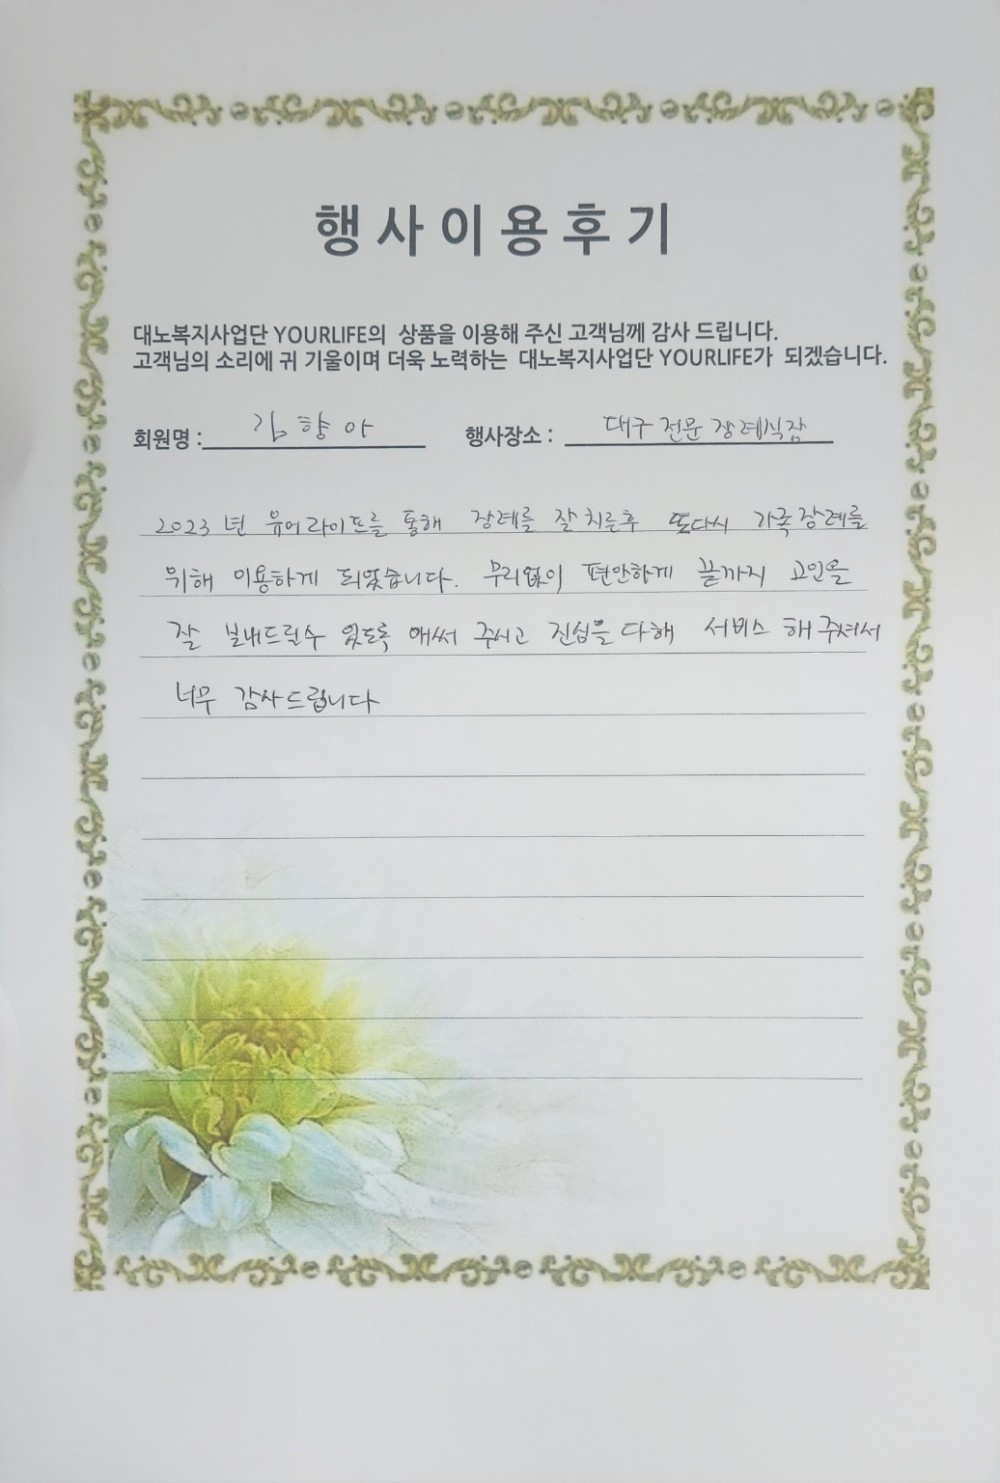 행사이용후기
대노복지사업단 YOURLIFE의 상품을 이용해 주신 고객님께 감사 드립니다.
고객님의 소리에 귀 기울이며 더욱 노력하는 대노복지사업단 YOURLIFE가 되겠습니다.
회원명 : 김향아 행사장소 : 대구전문장례식장
2023년 유어라이프를 통해 장례를 잘 치른후 또다시 가족장례를
위해 이용하게 되었습니다. 무리없이 편안하게 끝까지 고인을
잘 보내드릴수 있도록 애써 주시고 진심을 다해 서비스 해 주셔서
너무 감사드립니다